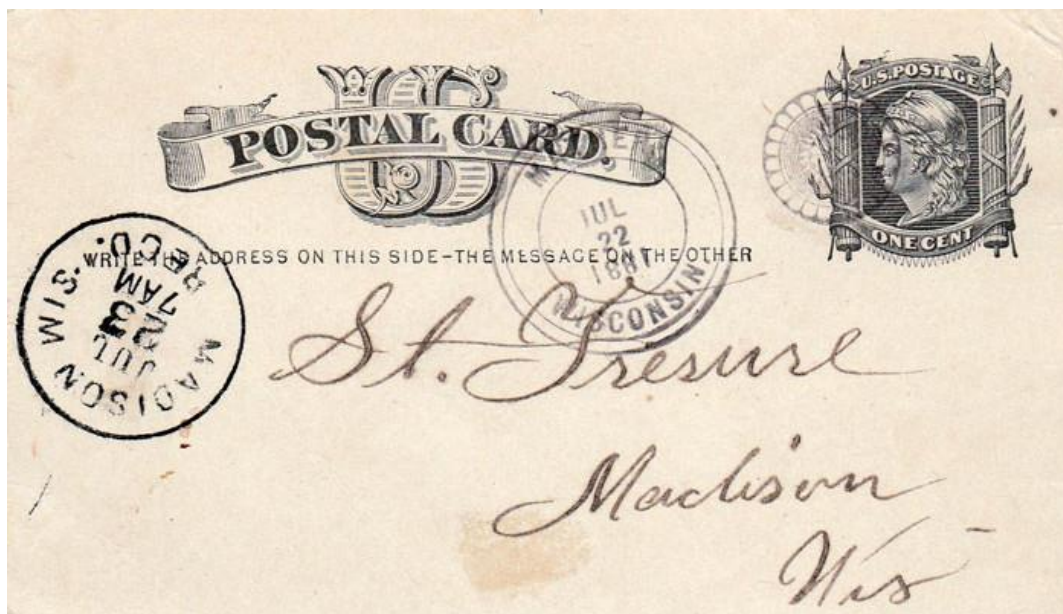 US
POSTAL CARD.
U.S. POSTAGE
ONE CENT
WRITE THE ADDRESS ON THIS SIDE-THE MESSAGE ON THE OTHER
JUL
22
WISCONSIN
MADISON WIS.
JUL
23
7AM
REC'D.
St. Tresure
Madison
Wis